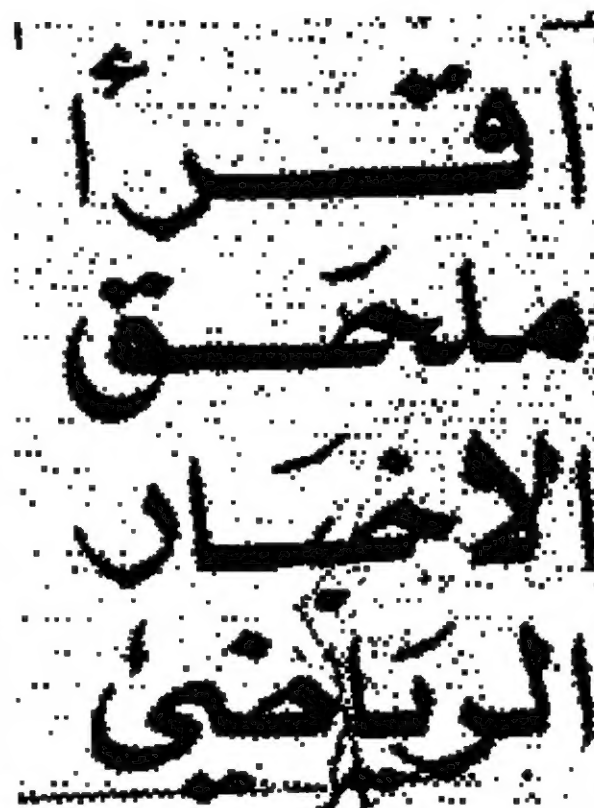 اقرأ
ملحق
الاخبار
الرياضى